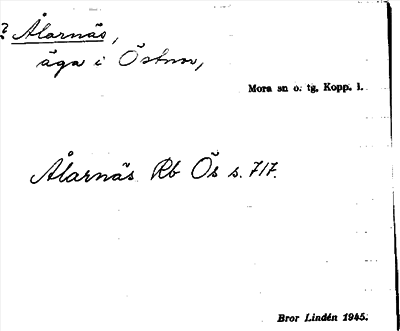 ? Ålarnäs,
äga i Östnor,
Mora sn o. tg. Kopp. l.
Ålarnäs Rb Ös s. 717.
Bror Lindén 1945.